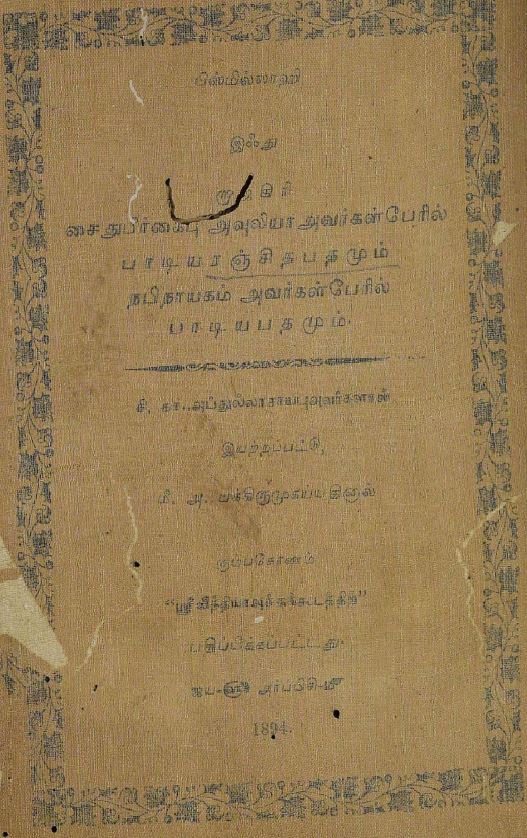 பிஸ்மில்லாஹி
இஃது
கிரி
சைதுபீர்கைபு அவுலியா அவர்கள்பேரில்
பாடியரஞ்சிதபதமும்
நபிநாயகம் அவர்கள்பேரில்
பாடியபதமும்.
சி. கா. அப்துல்லாசாயபுஅவர்களால்
இயற்றப்பட்டு,
மீ. அ.
கும்பகோணம்
"ஸ்ரீவித்தியாஅச்சுக்கூடத்திற்"
பதிப்பிக்கப்பட்டது.
ஜய-௵ அர்ப்பிசி-௴
1894.